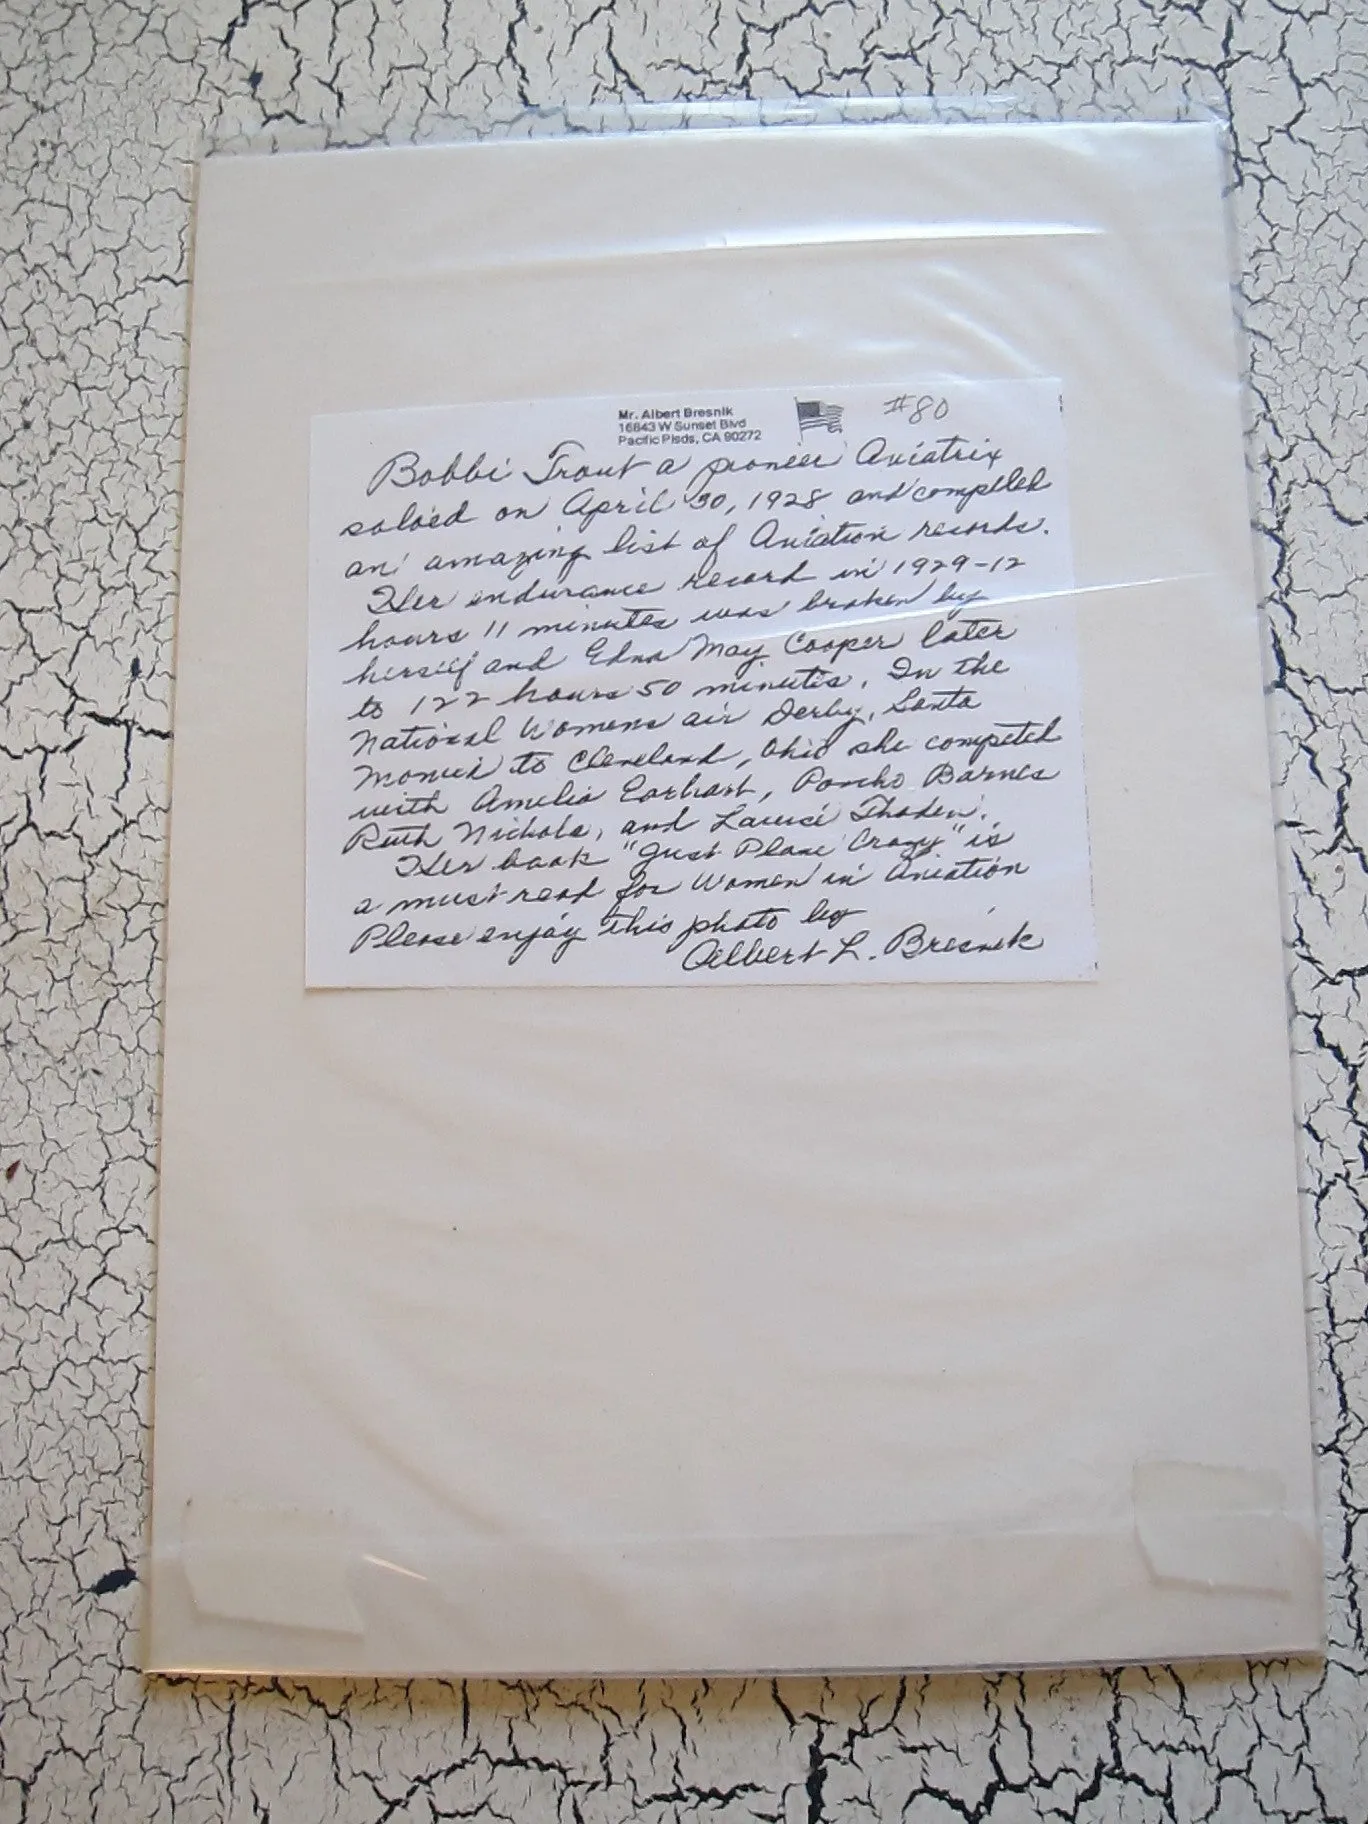 Mr. Albert Bresnik
16843 W Sunset Blvd
Pacific Plsds, CA 90272
#80
Bobbi Trout a pioneer Aviatrix
soloed on April 30, 1928 and compiled
an amazing list of Aviation records.
Her endurance record in 1929-12
hours 11 minutes was broken by
herself and Edna May Cooper later
to 122 hours 50 minutes. In the
National Womens air Derby, Santa
Monica to Cleveland, Ohio she competed
with Amelia Earhart, Poncho Barnes
Ruth Nichols, and Louise Thaden.
Her book "Just Plane Crazy" is
a must read for Women in Aviation
Please enjoy this photo by
Albert L. Bresnik